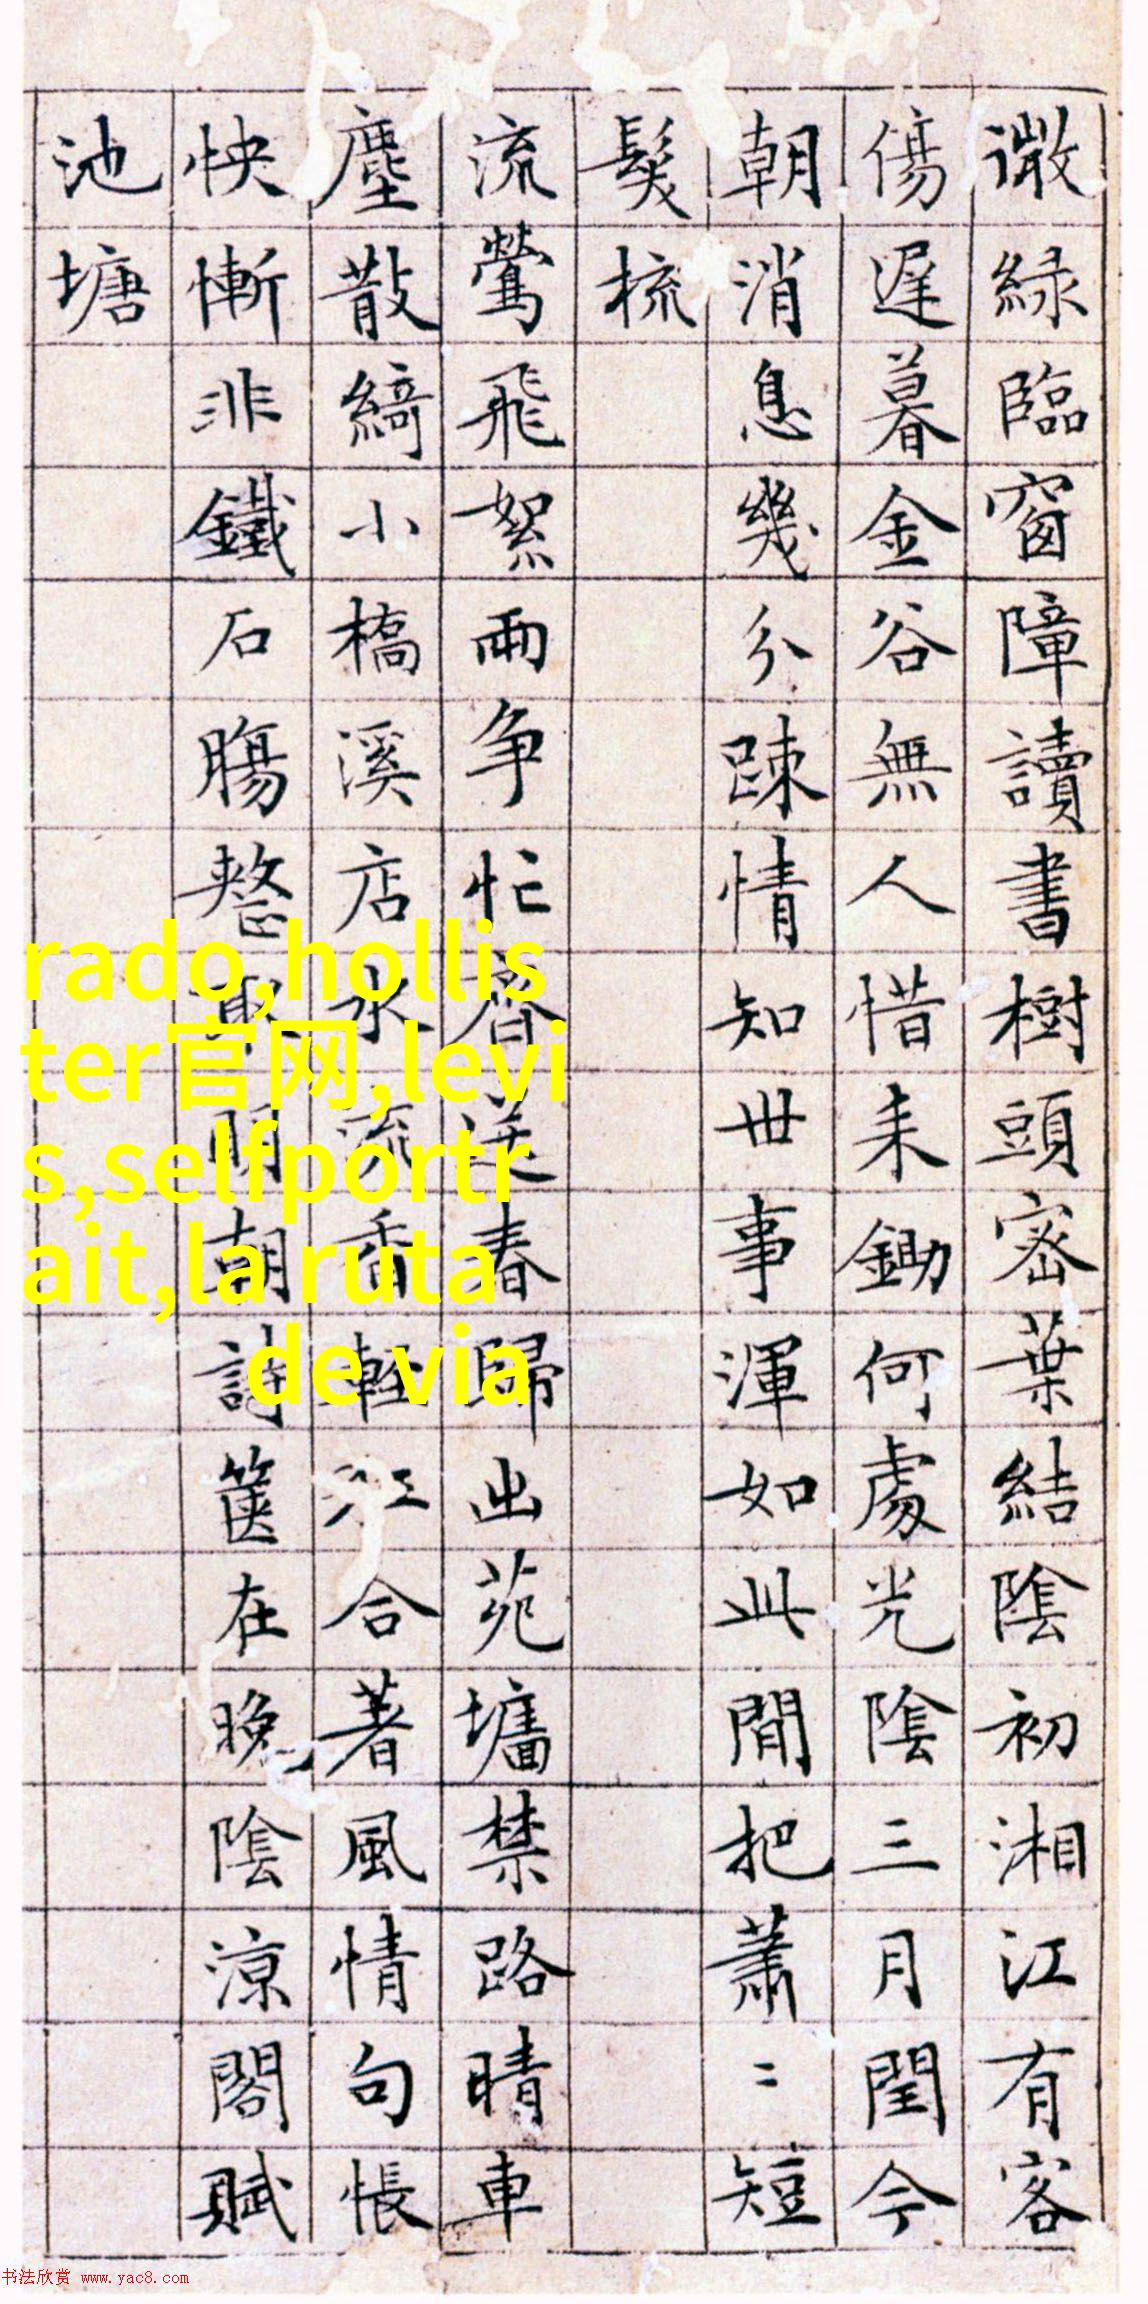 微緑臨窗障讀書樹頭密葉結陰初湘江有客
傷遲暮金谷無人惜耒鋤何處光陰三月閏今
朝消息幾分踈情知世事渾如此閒把蕭〻短
髮梳
流鶯飛絮兩争忙齊送春歸出苑墻禁路晴車
塵散綺小橋溪店水流香輕江合著風情句悵
怏慚非鐵石膓整取明朝詩篋在晚陰涼閣賦
池塘
rado,hollis
ter官网,levi
s,selfportr
ait,la ruta
de via
书法欣赏 www.yac8.com